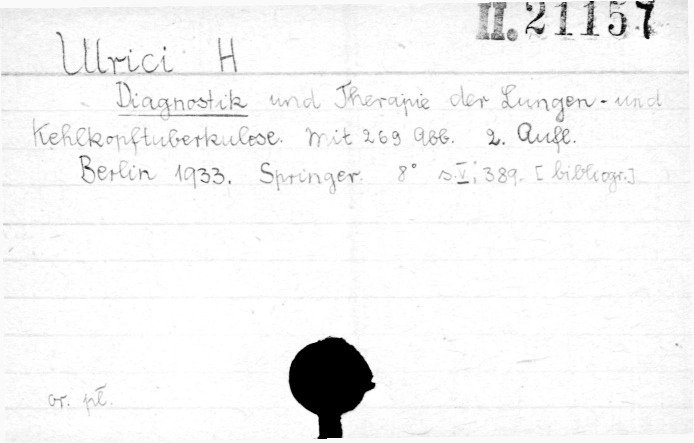 II.21157
Ulrici H
Diagnostik und Therapie der Lungen- und
Kehlkopftuberkulose. Mit 269 Abb. 2. Aufl.
Berlin 1933. Springer. 8° s.V; 389. [bibliogr.]
or. pł.